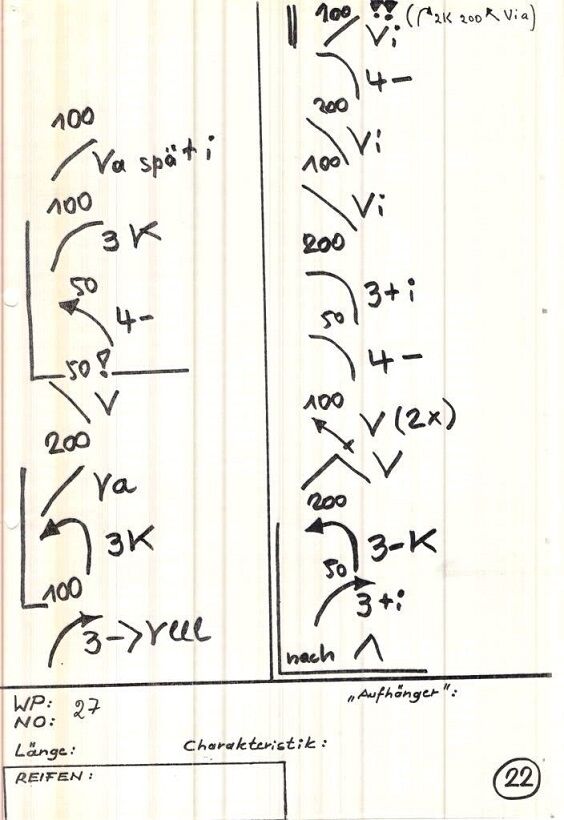 100
Va spät i
100
3 K
50
4-
50!
V
200
Va
3K
100
3->
100 !! (2K 200 Via)
Vi
4-
200
Vi
100
Vi
200
3+i
50
4-
100
V (2x)
V
200
3-K
50
3+i
nach
WP: 27
NO:
"Aufhänger":
Länge:
Charakteristik:
REIFEN:
22